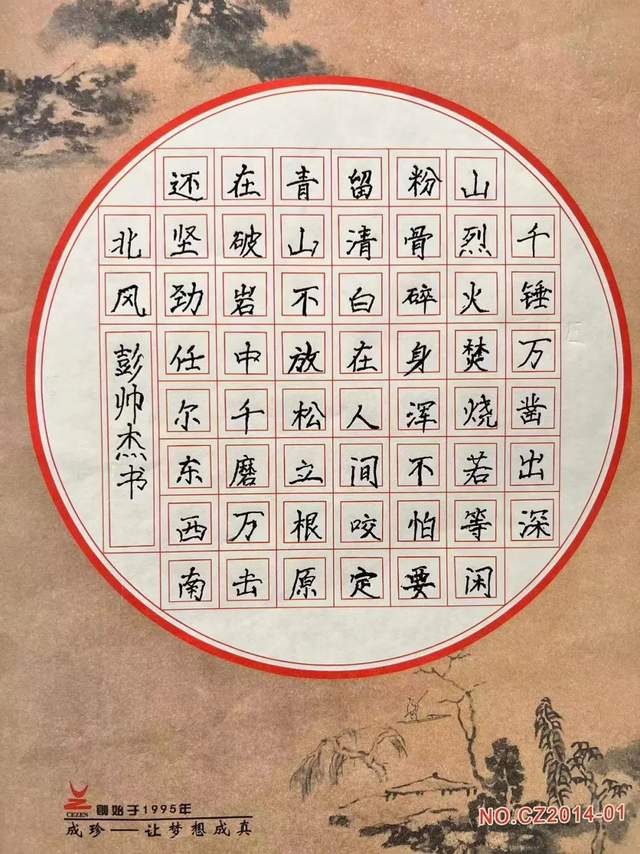 千锤万凿出深
山烈火焚烧若等闲
粉骨碎身浑不怕要
留清白在人间咬定
青山不放松立根原
在破岩中千磨万击
还坚劲任尔东西南
北风
彭帅杰书
CEZEN
創始于1995年
成珍——让梦想成真
NO.CZ2014-01